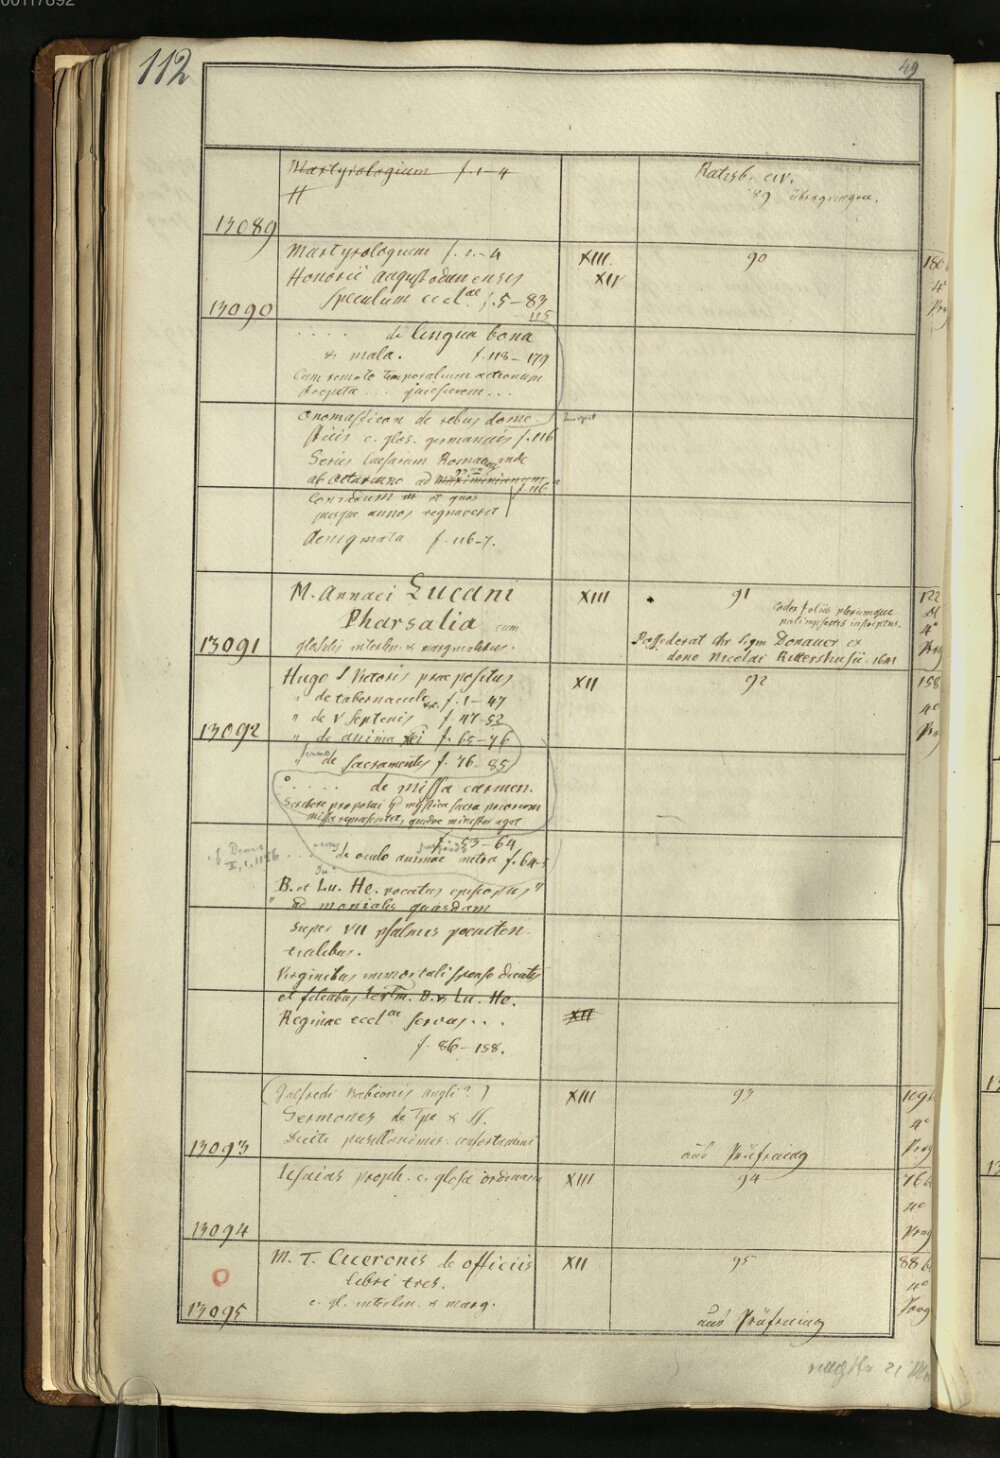 00117892
112
49
Martyrologium f. 1-4
H
Ratisb. civ.
89
13089
Martyrologium f. 1-4
XIII.
90
Honorii augustodunensis
XII
4°
speculum eccl.ae f. 5-83
115
13090
..... de lingua bona
& mala. f. 118-179
Cum remoto temporalium actionum
onomasticon de rebus dome
sticis c. glos. germanicis f. 116
Series Caesarum Romanorum inde
ab Octaviano ad maximinianum
Conradum III et quos
f. 116
quisque annos regnaverit
Aenigmata f. 116-7.
M. Annaei Lucani
XIII
91
122
Pharsalia cum
Codex foliis plerumque
palimpsestis inscriptus.
4°
13091
glossulis interlin. & marginalibus.
Possederat chr. sigm Donauer ex
dono Nicolai Rittershusii 1641
Hugo S Victoris praepositus
XII
92
158
" de tabernaculo f. 1-47
4°
" de V septenis f. 47-52
13092
" de anima xei f. 65-76
sermo
de sacramentis f. 76-85
..... de missa carmen.
Scribere proposui quae mystica sacra priorum
missa repraesentet, quidve minister agat
f. 53-64
versus
de oculo animae metra f. 64-5
B. et Lu. He. vocatus episcopus"
" ad moniales quasdam
super VII psalmis poeniten-
tialibus.
Virginibus immortali sponso dicatis
et filiabus B. & Lu. He.
Reginae eccl.ae servus...
XII
f. 86-158.
(Galfredi Babionis Angli?)
XIII
93
109
Sermones de Tpe & SS.
4°
13093
Dicite pusillanimes confortamini
aus Prüfening
Isaias proph. c. glosa ordinaria
XIII
94
76
4°
13094
M. T. Ciceronis de officiis
XII
95
88
libri tres.
4°
13095
c. gl. interlin. & marg.
aus Prüfening